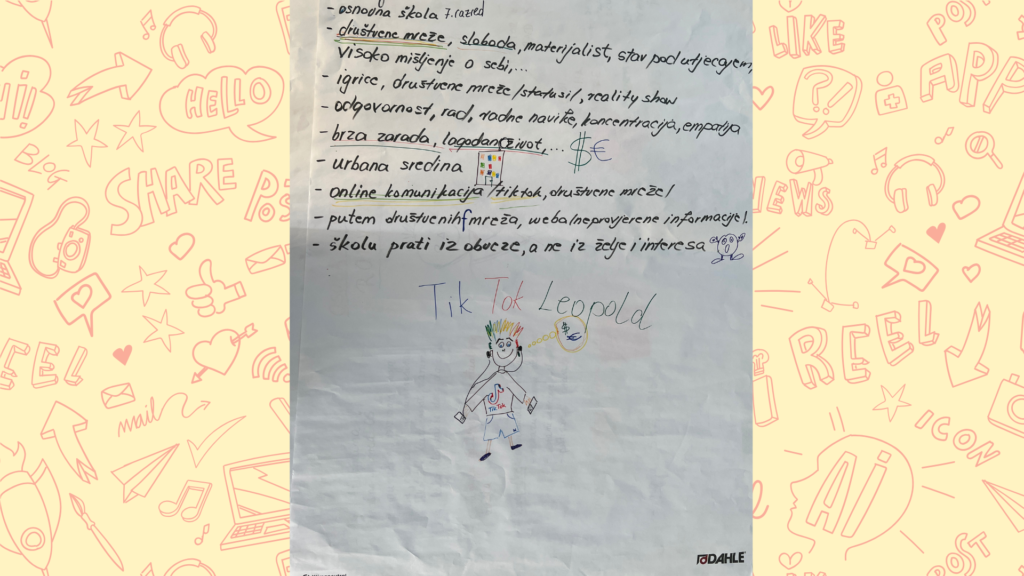 - osnovna škola 7. razred
- društvene mreže, sloboda, materijalist, stav pod utjecajem,
visoko mišljenje o sebi,...
- igrice, društvene mreže/statusi/, reality show
- odgovornost, rad, radne navike, koncentracija, empatija
- brza zarada, lagodan život,... $€
- urbana sredina
- online komunikacija /tiktok, društvene mreže/
- putem društvenih mreža, weba/neprovjerene informacije/.
- školu prati iz obveze, a ne iz želje i interesa
Tik Tok Leopold
$
€
Tik Tok
DAHLE
HELLO
BLOG
SHARE
REEL
mail
LIKE
POST
APP
NEWS
REEL
ICON
Ai
POST